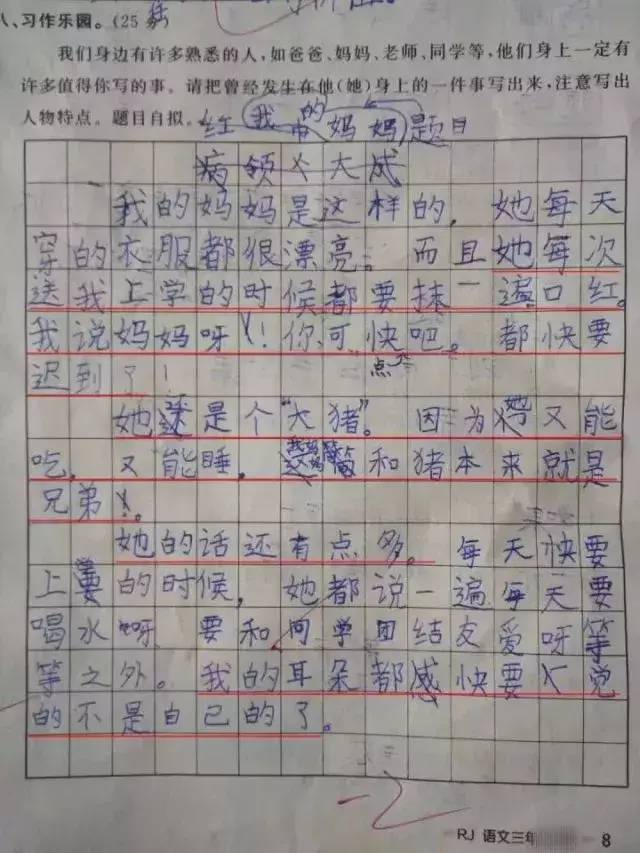 八、习作乐园。(25分)
我们身边有许多熟悉的人,如爸爸、妈妈、老师、同学等,他们身上一定有
许多值得你写的事。请把曾经发生在他(她)身上的一件事写出来,注意写出
人物特点。题目自拟。
红 我的妈妈 题目
病领 大成
我的妈妈是这样的,她每天
穿的衣服都很漂亮。而且她每次
送我上学的时候都要抹一遍口红。
我说妈妈呀!你可快点吧。都快要
迟到了!
她还是个“大猪”。因为她又能
吃,又能睡,妈妈和猪本来就是
兄弟。
她的话还有点多。每天快要
上的时候,她都说一遍每天要
喝水呀 要和同学团结友爱呀等
等之外。我的耳朵都感快要觉
的不是自己的了。
RJ 语文三年 8